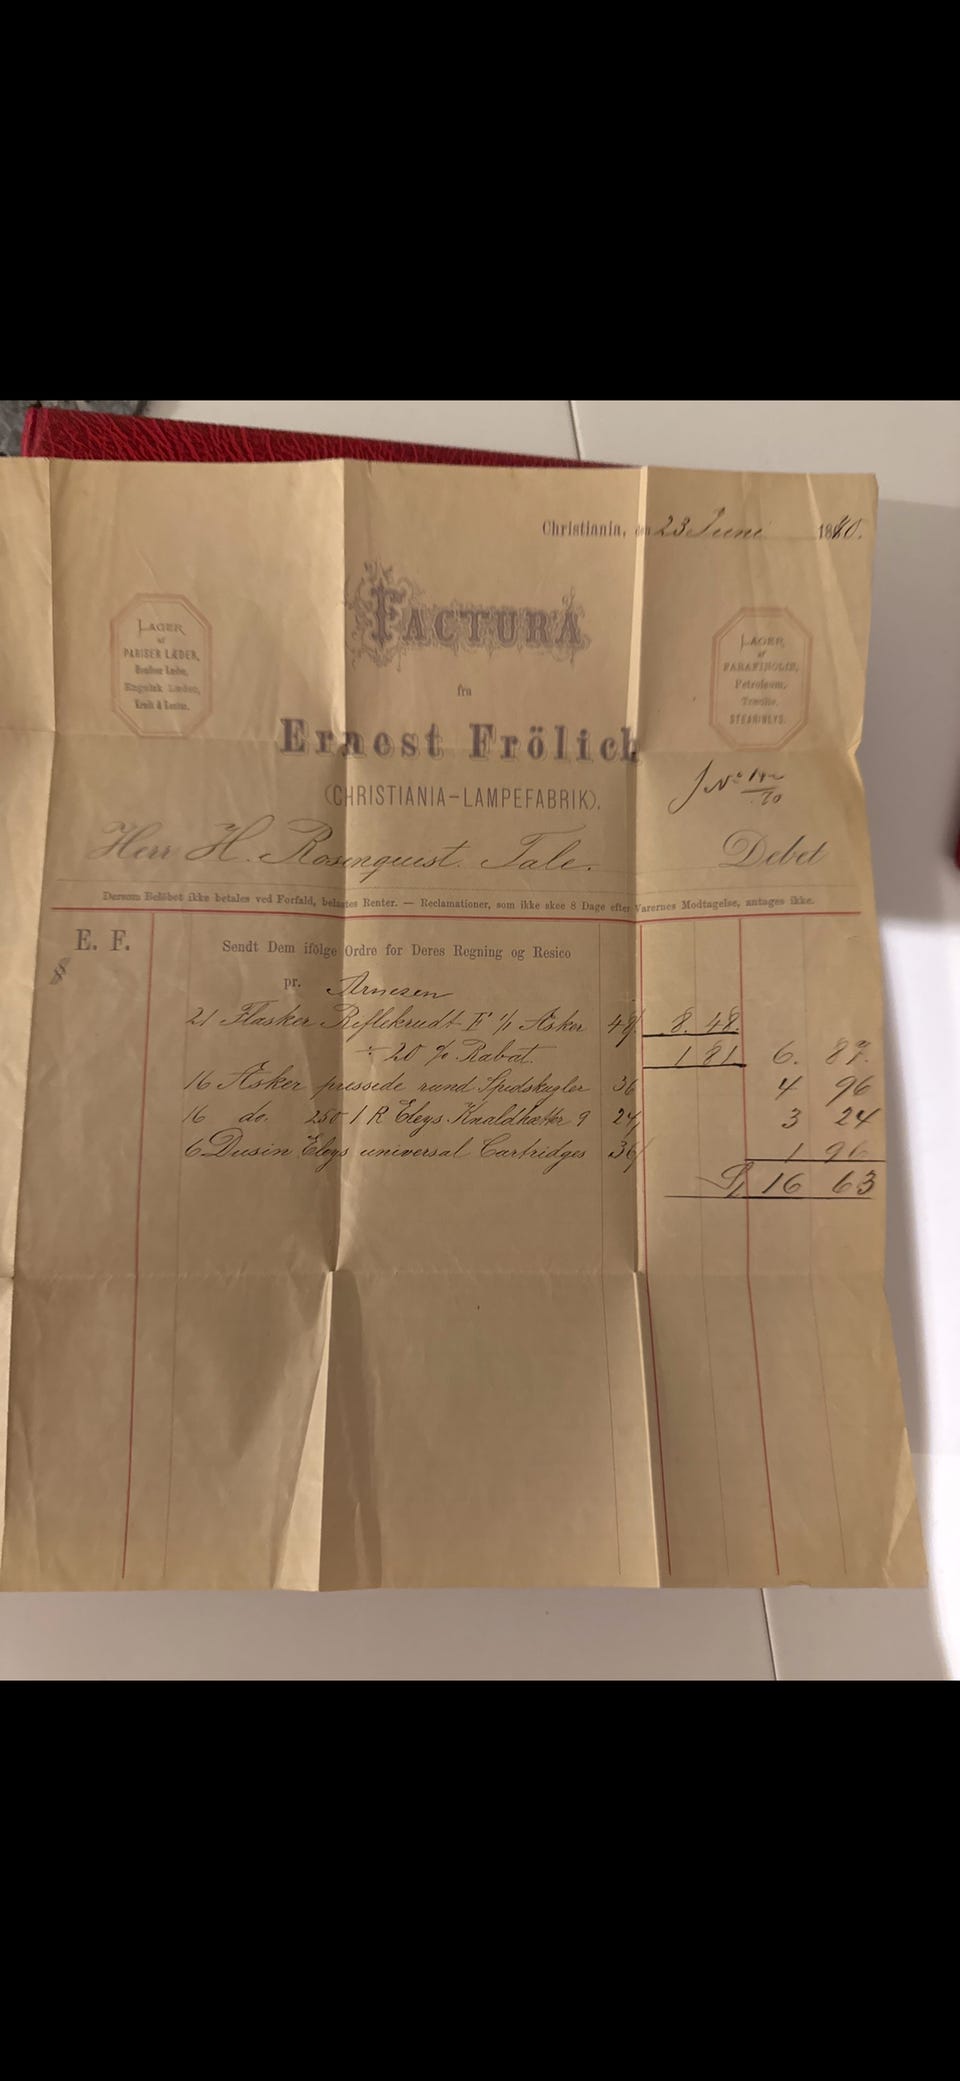 Christiania, den 23 Juni 1870.
FACTURA
LAGER
af
PARISER LÆDER,
Engelsk Læder,
LAGER
af
PARAFINOLIE,
Petroleum,
STEARINLYS.
fra
Ernest Frölich
(CHRISTIANIA-LAMPEFABRIK).
Herr H. Rosenquist. Debet
Dersom Belöbet ikke betales ved Forfald, belastes Renter. — Reclamationer, som ikke skee 8 Dage efter Varernes Modtagelse, antages ikke.
E. F. Sendt Dem ifölge Ordre for Deres Regning og Resico
pr. Arnesen
21 Flasker Riflekrudt F 1/1 Æsker 48 8. 48.
÷ 20 % Rabat. 1 81 6. 87.
16 Æsker pressede rund Spidskugler 36 4 96
16 do. 250 1 R Eleys Knaldhætter 9 24 3 24
6 Dusin Eleys universal Cartridges 36 1 96
16 63